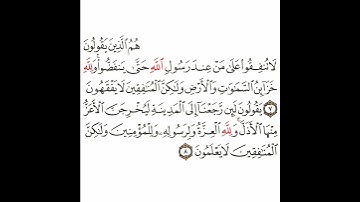 هُمُ ٱلَّذِينَ يَقُولُونَ
لَا تُنفِقُوا۟ عَلَىٰ مَنْ عِندَ رَسُولِ ٱللَّهِ حَتَّىٰ يَنفَضُّوا۟ وَلِلَّهِ
خَزَآئِنُ ٱلسَّمَٰوَٰتِ وَٱلْأَرْضِ وَلَٰكِنَّ ٱلْمُنَٰفِقِينَ لَا يَفْقَهُونَ
٧ يَقُولُونَ لَئِن رَّجَعْنَآ إِلَى ٱلْمَدِينَةِ لَيُخْرِجَنَّ ٱلْأَعَزُّ
مِنْهَا ٱلْأَذَلَّ وَلِلَّهِ ٱلْعِزَّةُ وَلِرَسُولِهِۦ وَلِلْمُؤْمِنِينَ وَلَٰكِنَّ
ٱلْمُنَٰفِقِينَ لَا يَعْلَمُونَ ٨